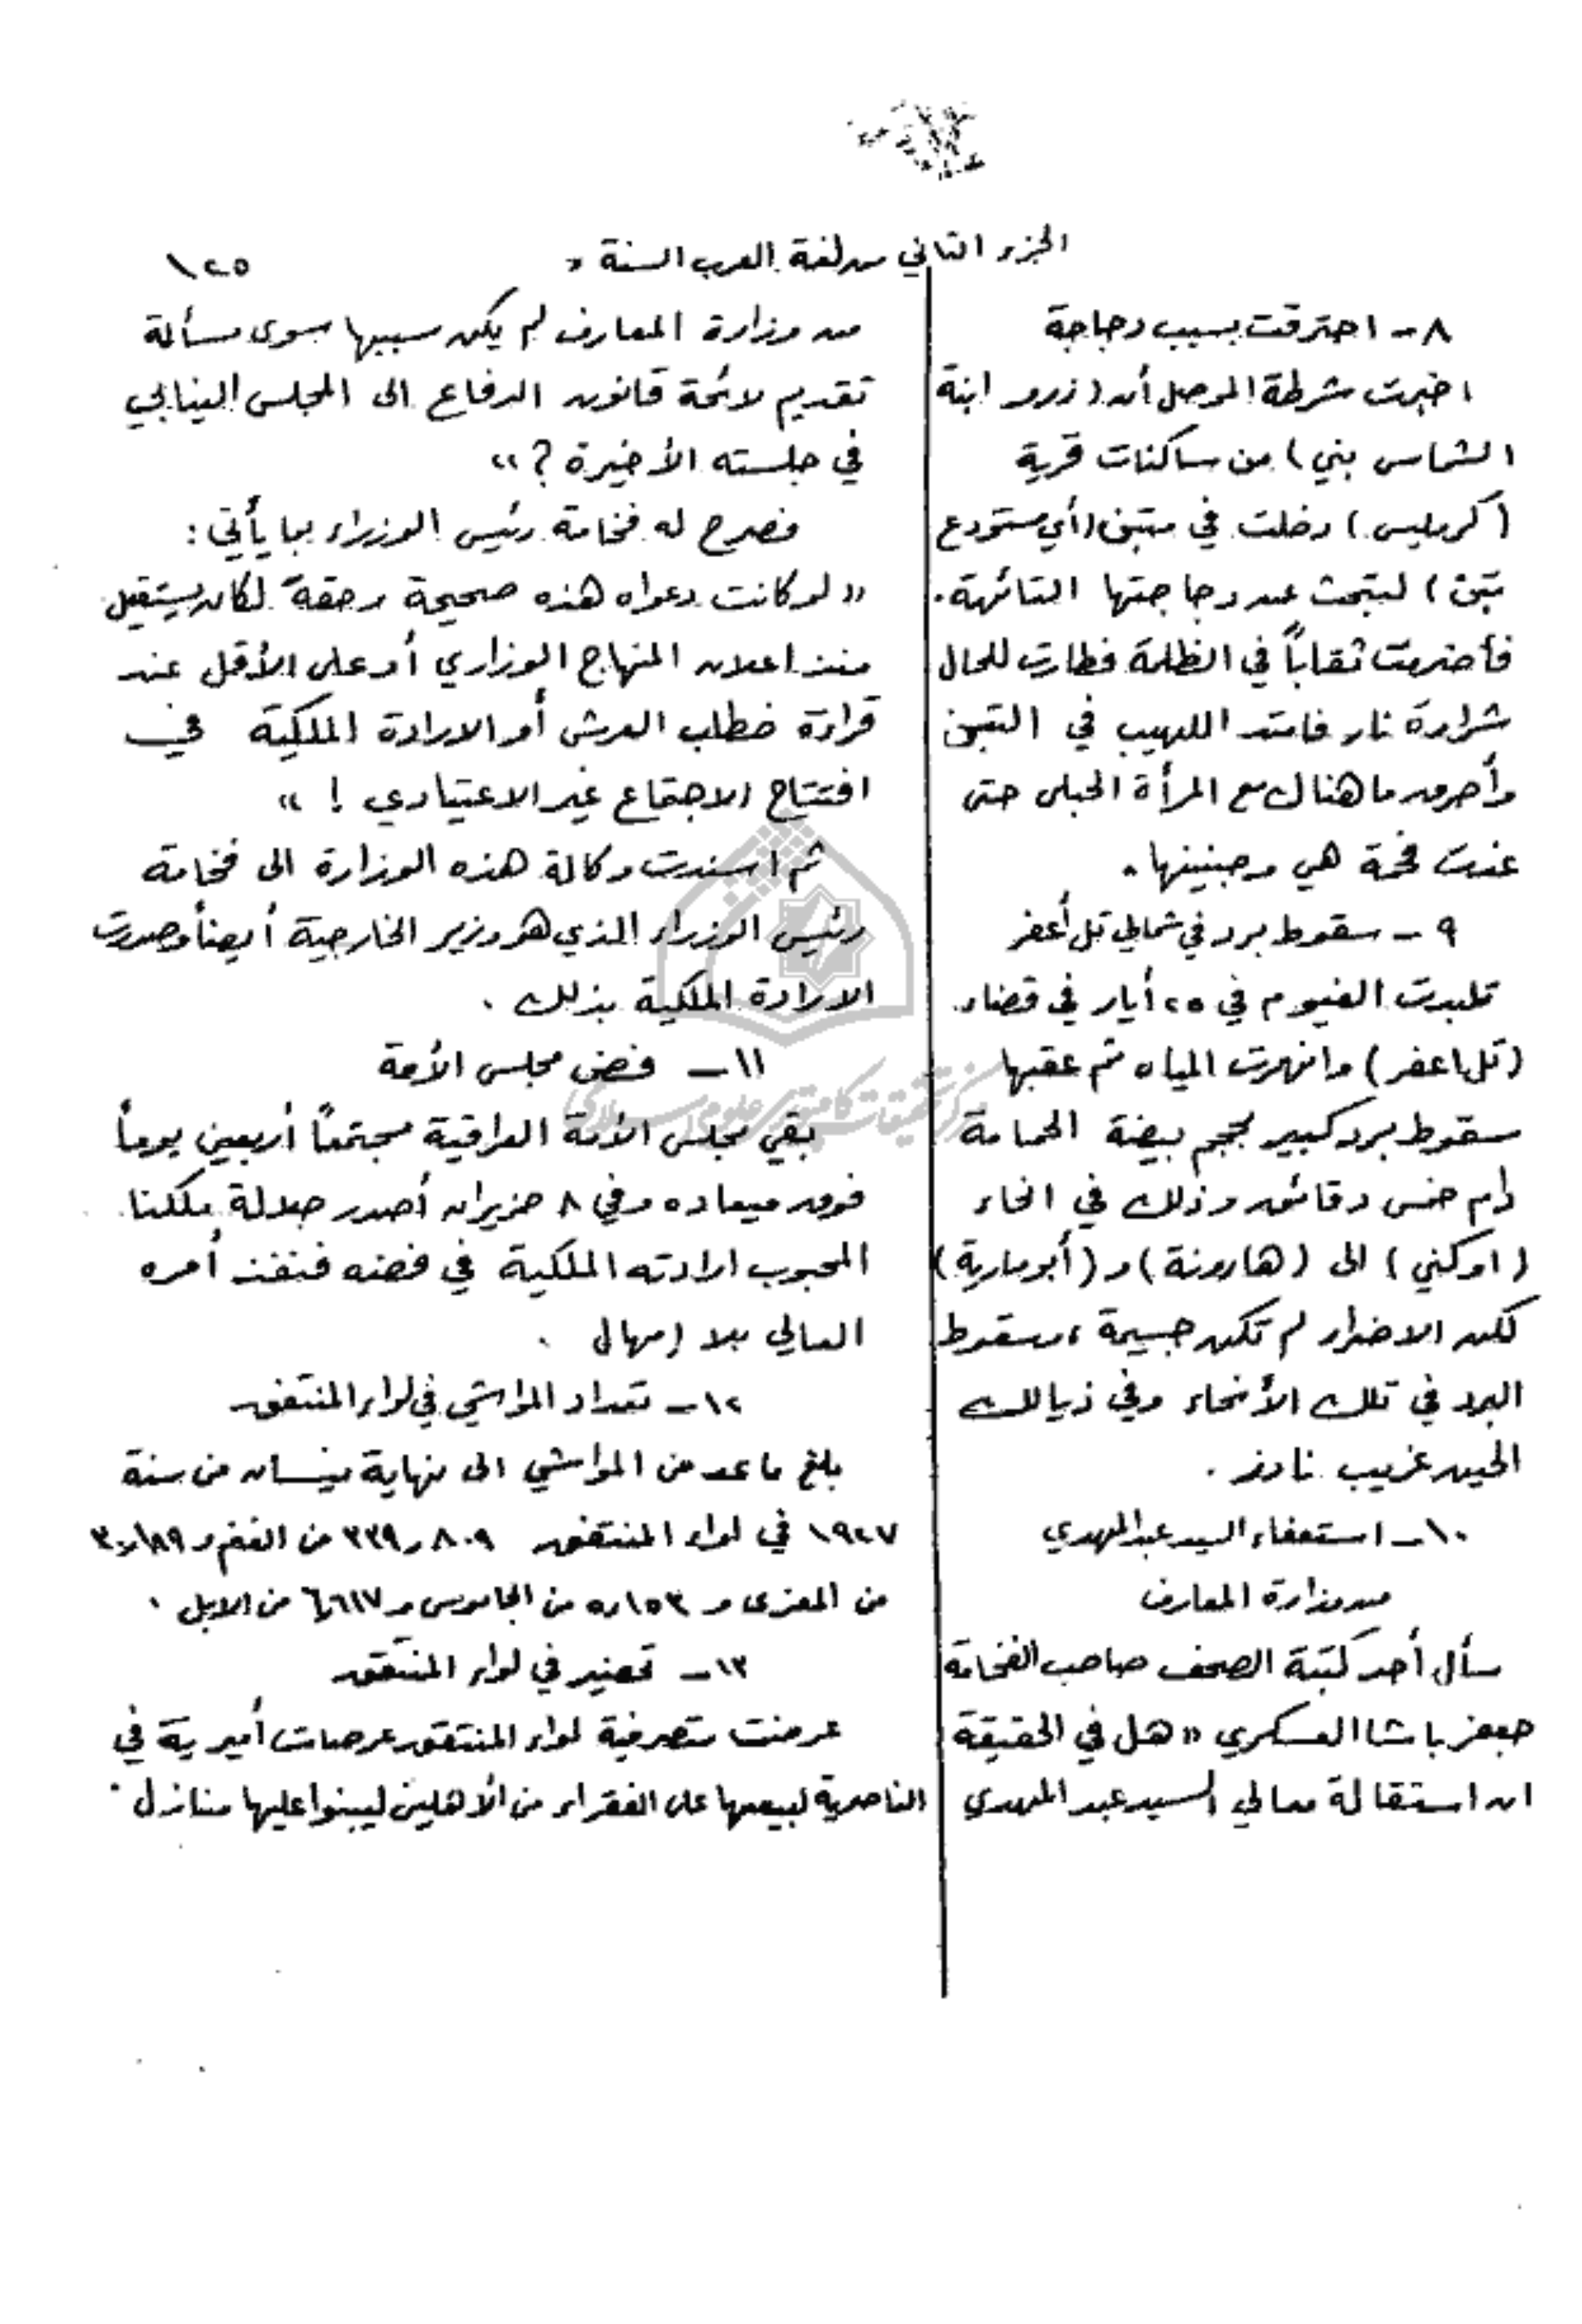 الجزء الثاني من لغة العرب السنة ٥
١٢٥
٨ - احترقت بسبب دجاجة
اخبرت شرطة الموصل أن (زرو ابنة
الشماس بني) من ساكنات قرية
(كرمليس) دخلت في متبن (أي مستودع
تبن) لتبحث عن دجاجتها التائهة.
فأضرمت ثقاباً في الظلمة فطارت للحال
شرارة نار فامتد اللهيب في التبن
وأحرق ما هناك مع المرأة الحبلى حتى
غدت فحمة هي وجنينها.
٩ - سقوط برد في شمالي تل أعفر
تلبدت الغيوم في ٢٥ أيار في قضاء
(تل اعفر) وانهمرت المياه ثم عقبها
سقوط برد كبير بحجم بيضة الحمامة
دام خمس دقائق وذلك في انحاء
(اوكني) الى (هارونة) و (أبو مارية)
لكن الاضرار لم تكن جسيمة، وسقوط
البرد في تلك الأنحاء وفي ذيالك
الحين غريب نادر.
١٠ - استعفاء السيد عبد المهدي
من وزارة المعارف
سأل أحد كتبة الصحف صاحب الفخامة
جعفر باشا العسكري «هل في الحقيقة
ان استقالة معالي السيد عبد المهدي
من وزارة المعارف لم يكن سببها سوى مسألة
تقديم لائحة قانون الدفاع الى المجلس النيابي
في جلسته الأخيرة؟»
فصرح له فخامة رئيس الوزراء بما يأتي:
«لو كانت دعواه هذه صحيحة وحقة لكان يستقيل
منذ اعلان المنهاج الوزاري أو على الأقل عند
قراءة خطاب العرش أو الارادة الملكية في
افتتاح الاجتماع غير الاعتيادي!»
ثم اسندت وكالة هذه الوزارة الى فخامة
رئيس الوزراء الذي هو وزير الخارجية أيضاً وصدرت
الارادة الملكية بذلك.
١١ - فض مجلس الأمة
بقي مجلس الأمة العراقية مجتمعاً أربعين يوماً
فوق ميعاده وفي ٨ حزيران أصدر جلالة ملكنا
المحبوب ارادته الملكية في فضه فنفذ أمره
العالي بلا إمهال.
١٢ - تعداد المواشي في لواء المنتفق
بلغ ما عد من المواشي الى نهاية نيسان من سنة
١٩٢٧ في لواء المنتفق ٣٣٩,٨٠٩ من الغنم و
من المعزى و ٥,١٥٣ من الجاموس و ٦,٦١٧ من الابل.
١٣ - تحضير في لواء المنتفق
عرضت متصرفية لواء المنتفق عرصات أميرية في
الناصرية لبيعها على الفقراء من الأهلين ليبنوا عليها منازل.
مركز تحقیقات کامپیوتری علوم اسلامی